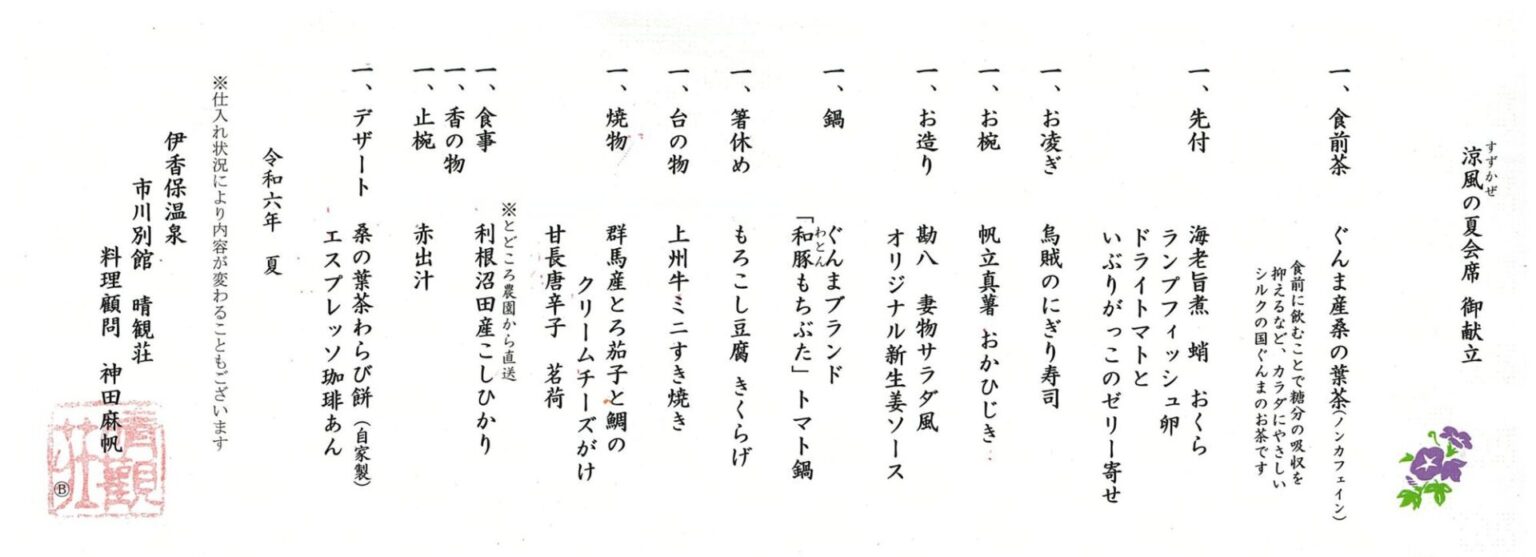 涼風の夏会席 御献立
すずかぜ
一、食前茶 ぐんま産桑の葉茶(ノンカフェイン)
食前に飲むことで糖分の吸収を
抑えるなど、カラダにやさしい
シルクの国ぐんまのお茶です
一、先付 海老旨煮 蛸 おくら
ランプフィッシュ卵
ドライトマトと
いぶりがっこのゼリー寄せ
一、お凌ぎ 烏賊のにぎり寿司
一、お椀 帆立真薯 おかひじき
一、お造り 勘八 妻物サラダ風
オリジナル新生姜ソース
一、鍋 ぐんまブランド
「和豚もちぶた」トマト鍋
わとん
一、箸休め もろこし豆腐 きくらげ
一、台の物 上州牛ミニすき焼き
一、焼物 群馬産とろ茄子と鯛の
クリームチーズがけ
甘長唐辛子 茗荷
※とどころ農園から直送
一、食事 利根沼田産こしひかり
一、香の物
一、止椀 赤出汁
一、デザート 桑の葉茶わらび餅(自家製)
エスプレッソ珈琲あん
令和六年 夏
※仕入れ状況により内容が変わることもございます
伊香保温泉
市川別館 晴観荘
料理顧問 神田麻帆
晴觀荘
B